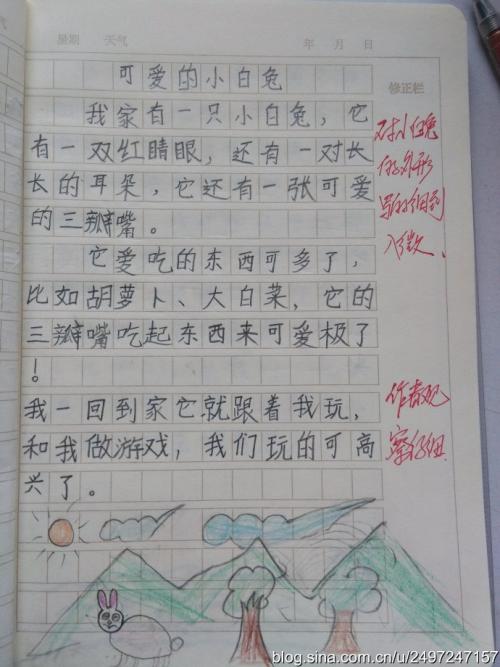 星期 天气 年 月 日
可爱的小白兔
修正栏
我家有一只小白兔，它
有一双红睛眼，还有一对长
长的耳朵，它还有一张可爱
的三瓣嘴。
对小白兔
的外形
写的细到
入微、
它爱吃的东西可多了，
比如胡萝卜、大白菜，它的
三瓣嘴吃起东西来可爱极了
！
我一回到家它就跟着我玩，
和我做游戏，我们玩的可高
兴了。
作者观
察仔细
blog.sina.com.cn/u/2497247157